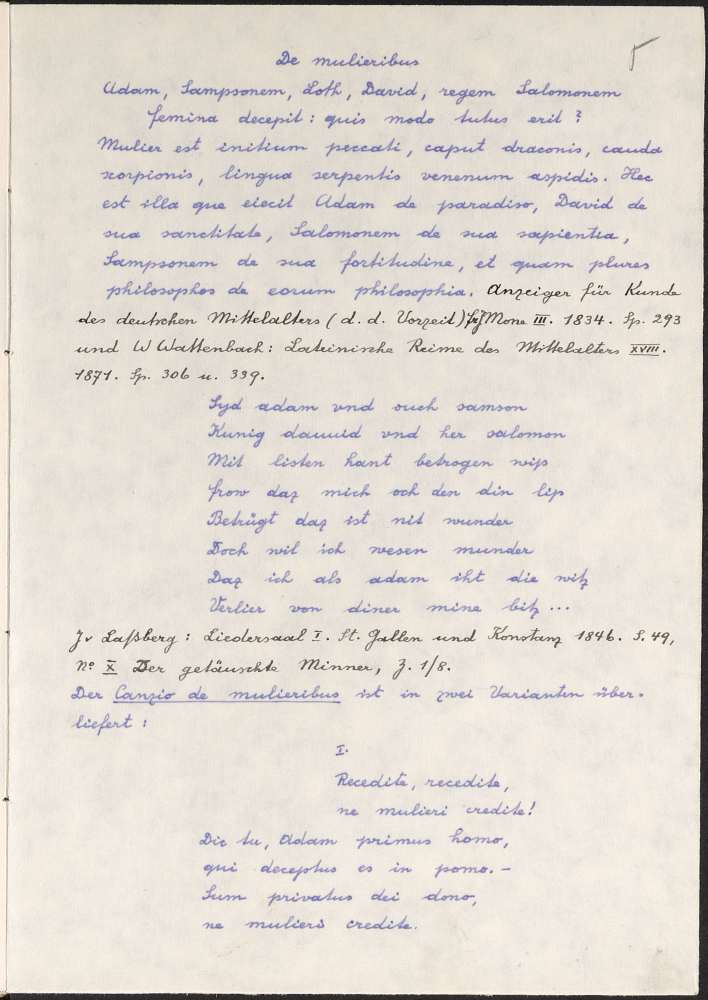 De mulieribus
Adam, Sampsonem, Loth, David, regem Salomonem
femina decepit: quis modo tutus erit?
Mulier est initium peccati, caput draconis, cauda
scorpionis, lingua serpentis venenum aspidis. Hec
est illa que eiecit Adam de paradiso, David de
sua sanctitate, Salomonem de sua sapientia,
Sampsonem de sua fortitudine, et quam plures
philosophos de eorum philosophia. Anzeiger für Kunde
des deutschen Mittelalters (d. d. Vorzeit) Mone III. 1834. Sp. 293
und W Wattenbach: Lateinische Reime des Mittelalters XVIII.
1871. Sp. 306 u. 339.
Syd adam vnd ouch samson
Kunig dauuid vnd her salomon
Mit listen hant betrogen wip
frow daz mich och den din lip
Betrügt daz ist nit wunder
Doch wil ich wesen munder
Daz ich als adam iht die witz
Verlier von diner mine bitz ...
J v Laßberg: Liedersaal I. St. Gallen und Konstanz 1846. S. 49,
No X Der getäuschte Minner, Z. 1/8.
Der Canzio de mulieribus ist in zwei Varianten über-
liefert:
I.
Recedite, recedite,
ne mulieri credite!
Dic tu, Adam primus homo,
qui deceptus es in pomo. -
Sum privatus dei dono,
ne mulieri credite.